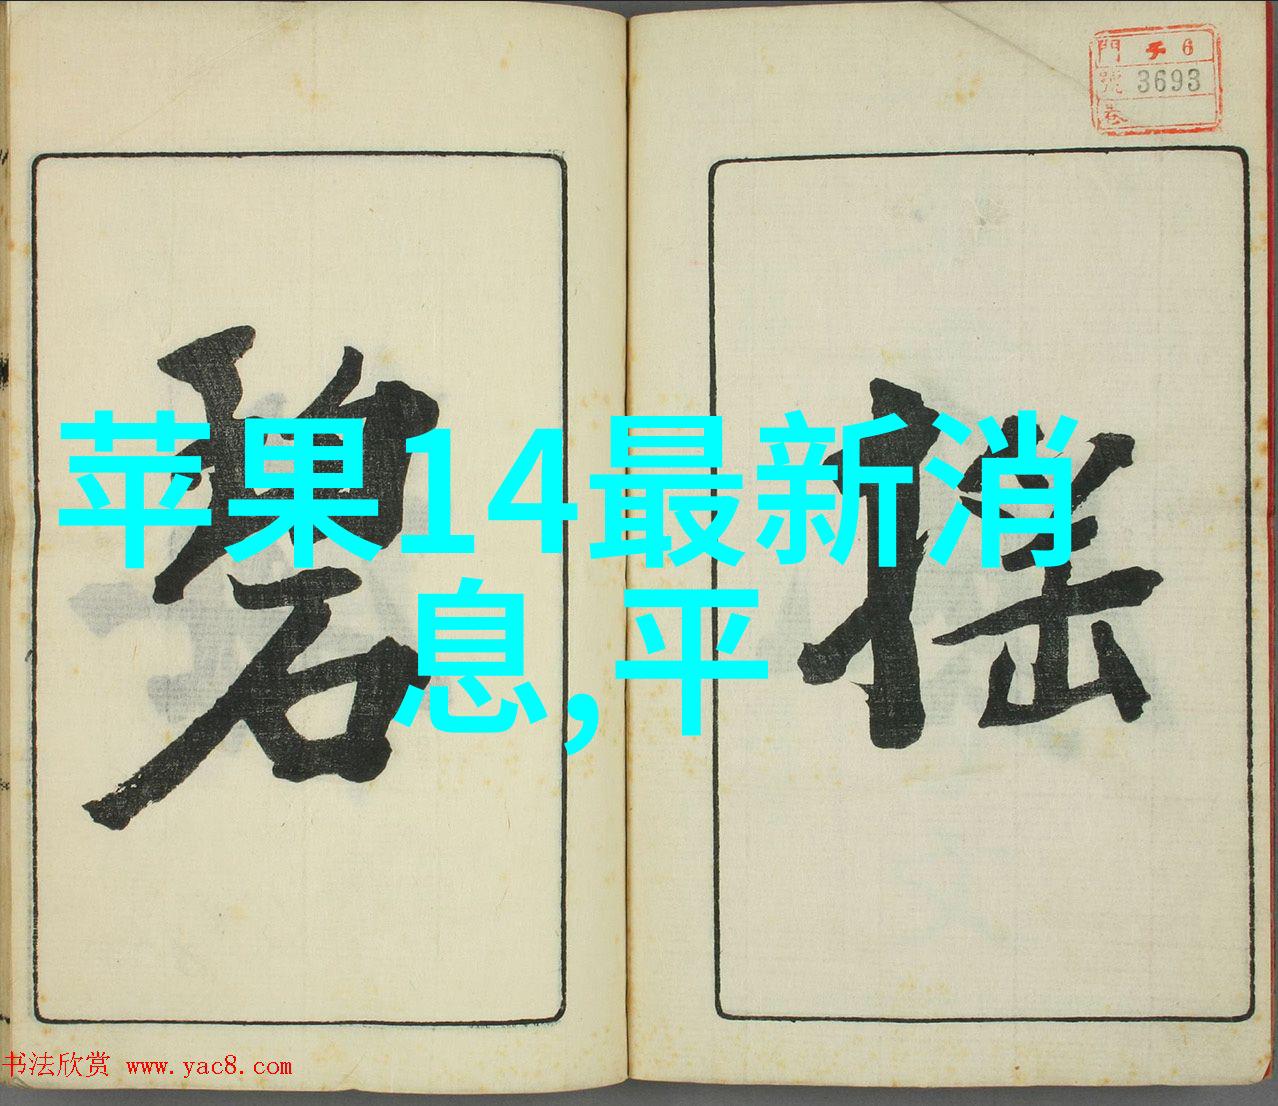 門 チ 6
號 3693
卷
搖
碧
苹果14最新消
息,平
书法欣赏 www.yac8.com